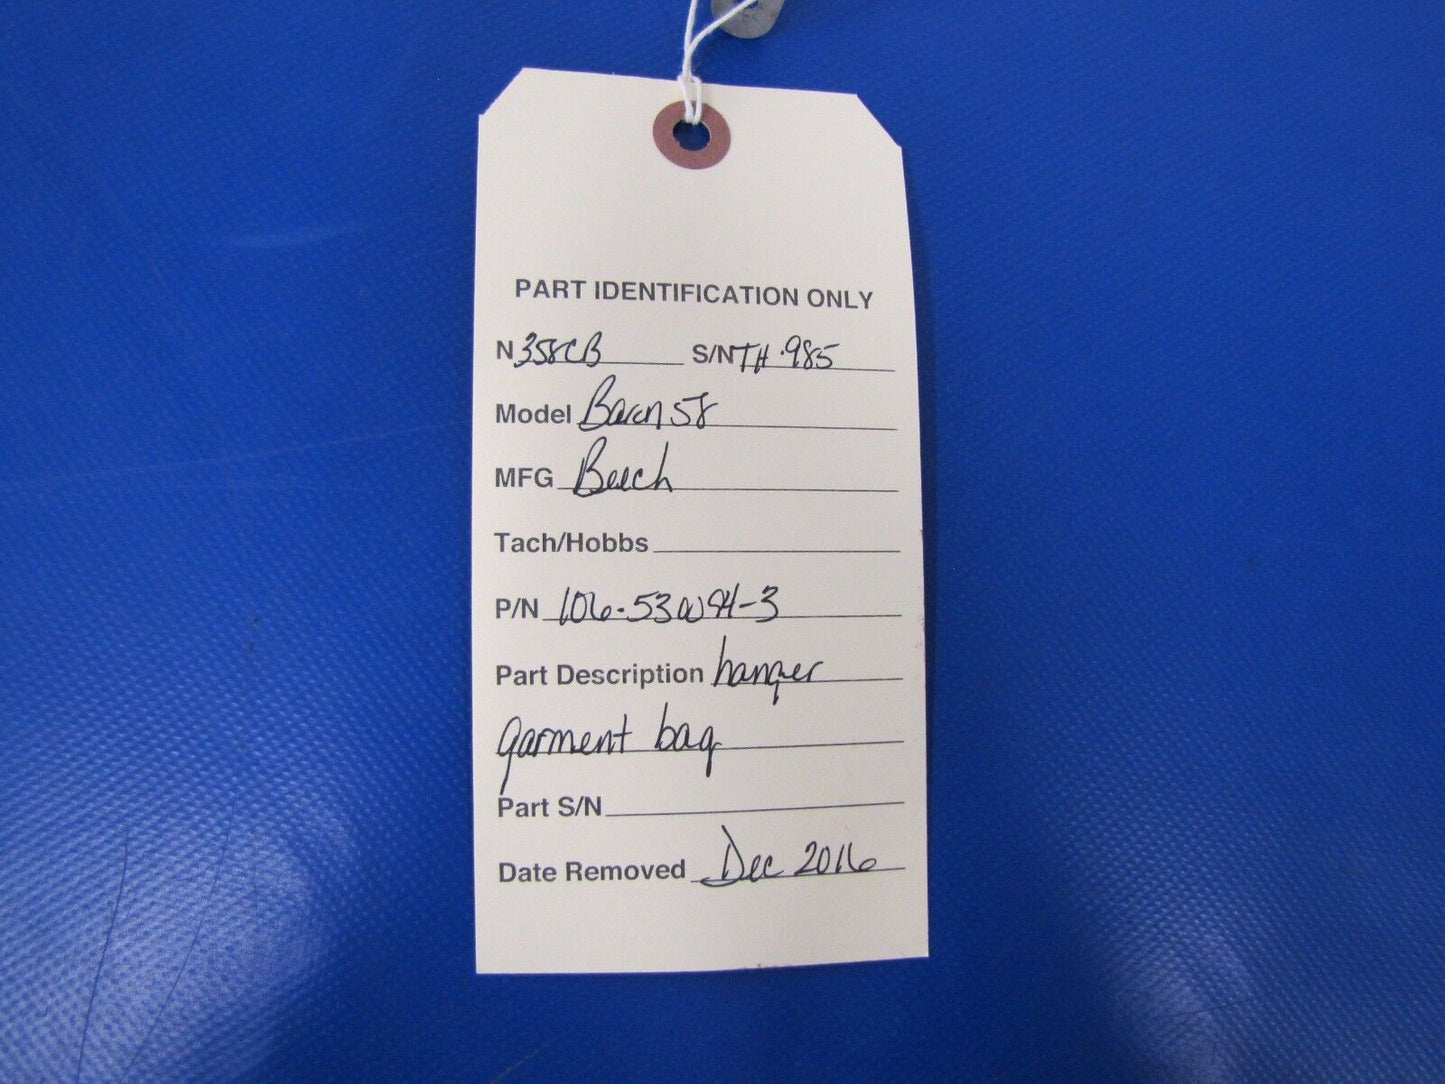 PART IDENTIFICATION ONLY
N 358CB S/N TH-985
Model Baron 58
MFG Beech
Tach/Hobbs
P/N 106-530084-3
Part Description hanger
garment bag
Part S/N
Date Removed Dec 2016